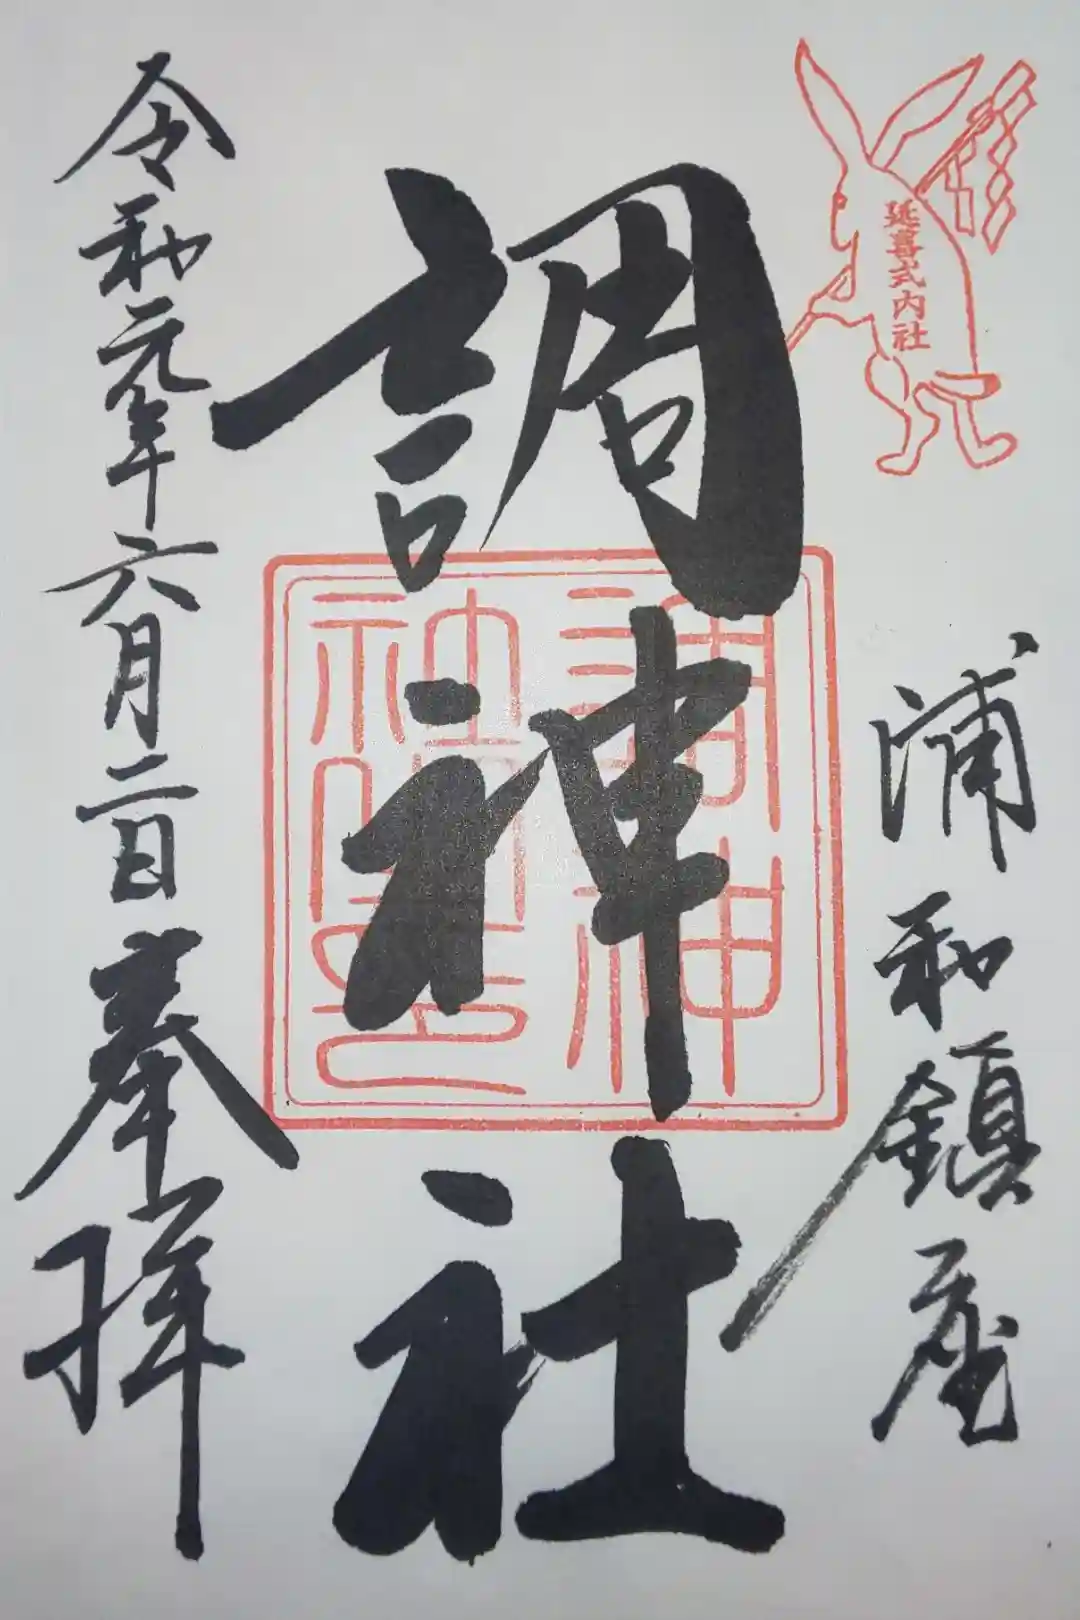 延喜式内社
浦和鎮座
調神社
調神
社印
令和元年六月二日奉拝